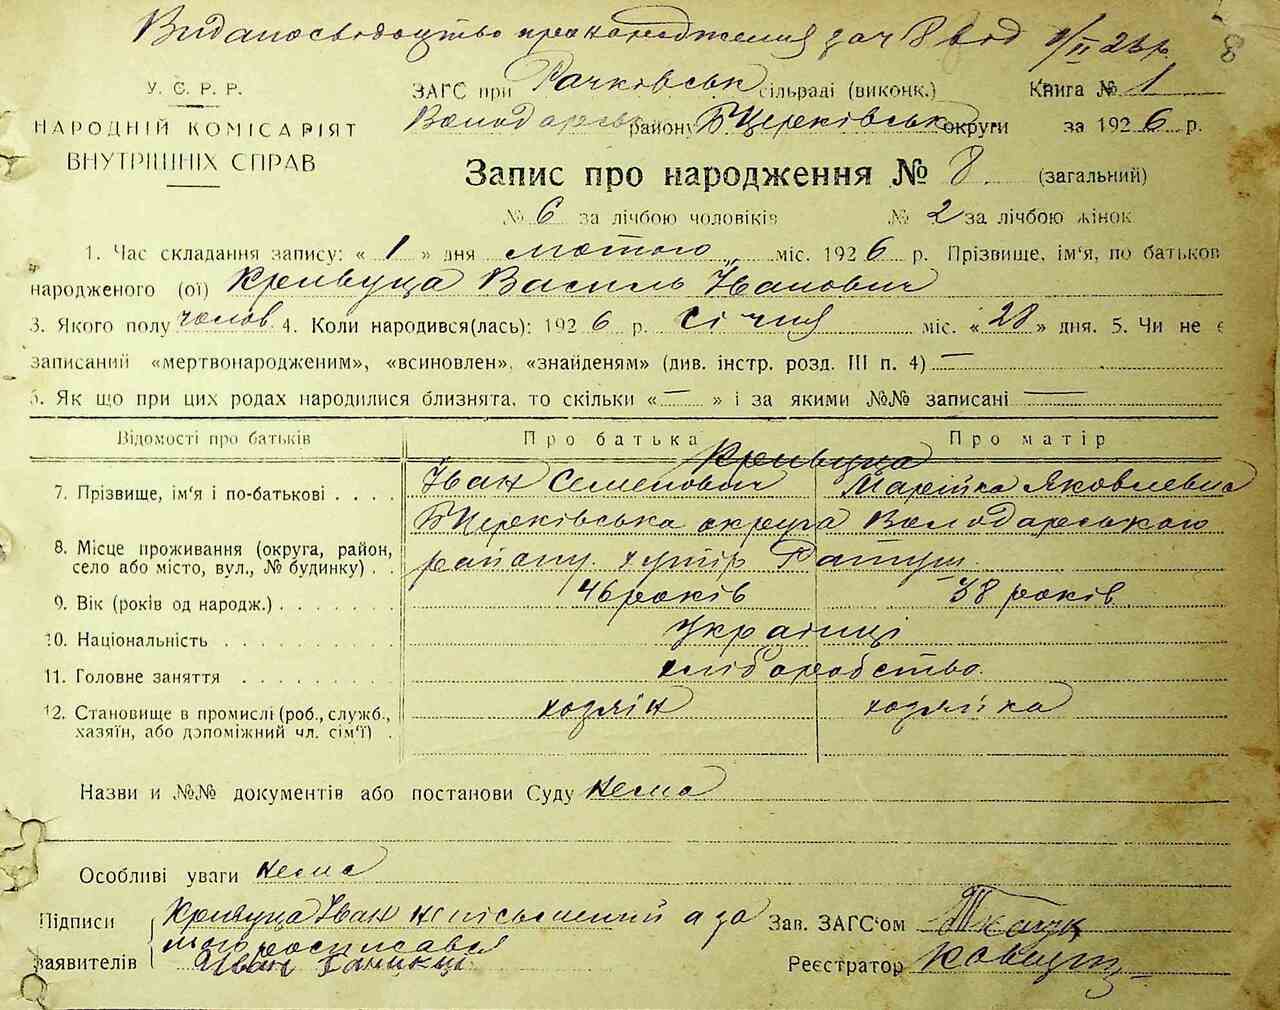 Видано свідоцтво про народження за ч 8 від 1/II 26 р. 8
У. С. Р. Р.
НАРОДНІЙ КОМІСАРІЯТ
ВНУТРІШНІХ СПРАВ
ЗАГС при Рачковськ сільраді (виконк.) Книга № 1
Володарськ району Б Церківськ округи за 1926 р.
Запис про народження № 8 (загальний)
№ 6 за лічбою чоловіків № 2 за лічбою жінок
1. Час складання запису: « 1 » дня лютого міс. 1926 р. Прізвище, ім'я, по батьков
народженого (ої) Кривуца Василь Іванович
3. Якого полу чолов. 4. Коли народився(лась): 1926 р. січня міс. «28» дня. 5. Чи не є
записаний «мертвонародженим», «всиновлен», «знайденям» (див. інстр. розд. III п. 4) —
6. Як що при цих родах народилися близнята, то скільки « — » і за якими №№ записані —
Відомості про батьків Про батька Про матір
Кривуца
7. Прізвище, ім'я і по-батькові . . . . Іван Семенович Марійка Яковлевна
Б Церківська округа Володарського
8. Місце проживання (округа, район,
село або місто, вул., № будинку) . . району. хутір
9. Вік (років од народж.) . . . . . . . 46 років 38 років
10. Національність . . . . . . . . . . українці
11. Головне заняття . . . . . . . . . хліборобство.
12. Становище в промислі (роб., служб.,
хазяїн, або допоміжний чл. сім'ї) . хозяїн хозяйка
Назви и №№ документів або постанови Суду нема
Особливі уваги нема
Підписи Кривуца Іван неписьменний а за
заявителів нього росписався
Іван
Зав. ЗАГС'ом
Реєстратор